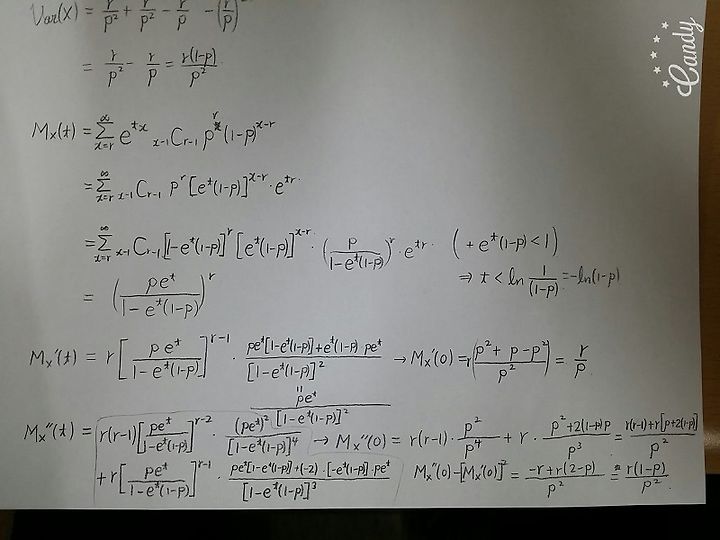 Var(X) = r/p² + r/p² - r/p - (r/p)²
= r/p² - r/p = r(1-p)/p²
Candy
Mx(t) = Σ_{x=r}^{∞} e^{tx} _{x-1}C_{r-1} p^r (1-p)^{x-r}
= Σ_{x=r}^{∞} _{x-1}C_{r-1} p^r [e^t(1-p)]^{x-r} · e^{tr}
= Σ_{x=r}^{∞} _{x-1}C_{r-1} [1-e^t(1-p)]^r [e^t(1-p)]^{x-r} · (p/(1-e^t(1-p)))^r · e^{tr} ( + e^t(1-p) < 1)
⇒ t < ln 1/(1-p) = -ln(1-p)
= (pe^t/(1-e^t(1-p)))^r
Mx'(t) = r [pe^t/(1-e^t(1-p))]^{r-1} · (pe^t[1-e^t(1-p)] + e^t(1-p)·pe^t)/[1-e^t(1-p)]² → Mx'(0) = r((p² + p - p²)/p²) = r/p
" pe^t/[1-e^t(1-p)]²
Mx''(t) = r(r-1) [pe^t/(1-e^t(1-p))]^{r-2} · (pe^t)²/[1-e^t(1-p)]⁴ → Mx''(0) = r(r-1) · p²/p⁴ + r · (p² + 2(1-p)p)/p³ = (r(r-1) + r[p+2(1-p)])/p²
+ r [pe^t/(1-e^t(1-p))]^{r-1} · (pe^t[1-e^t(1-p)] + (-2)·[-e^t(1-p)]·pe^t)/[1-e^t(1-p)]³ Mx''(0) - [Mx'(0)]² = (-r + r(2-p))/p² = r(1-p)/p²